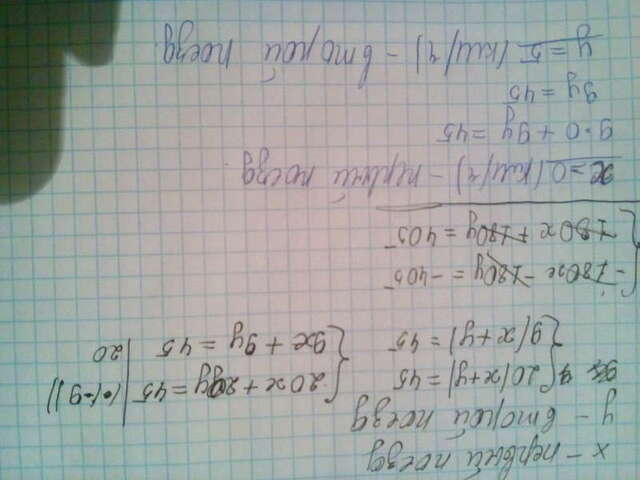 x – первый поезд
y – второй поезд
{ 20(x+y) = 45
9(x+y) = 45
{ 20x + 20y = 45 | (·(-9))
9x + 9y = 45 | 20
{ -180x - 180y = -405
180x + 180y = 405
x = 0 (км/ч) – первый поезд
9·0 + 9y = 45
9y = 45
y = 5 (км/ч) – второй поезд